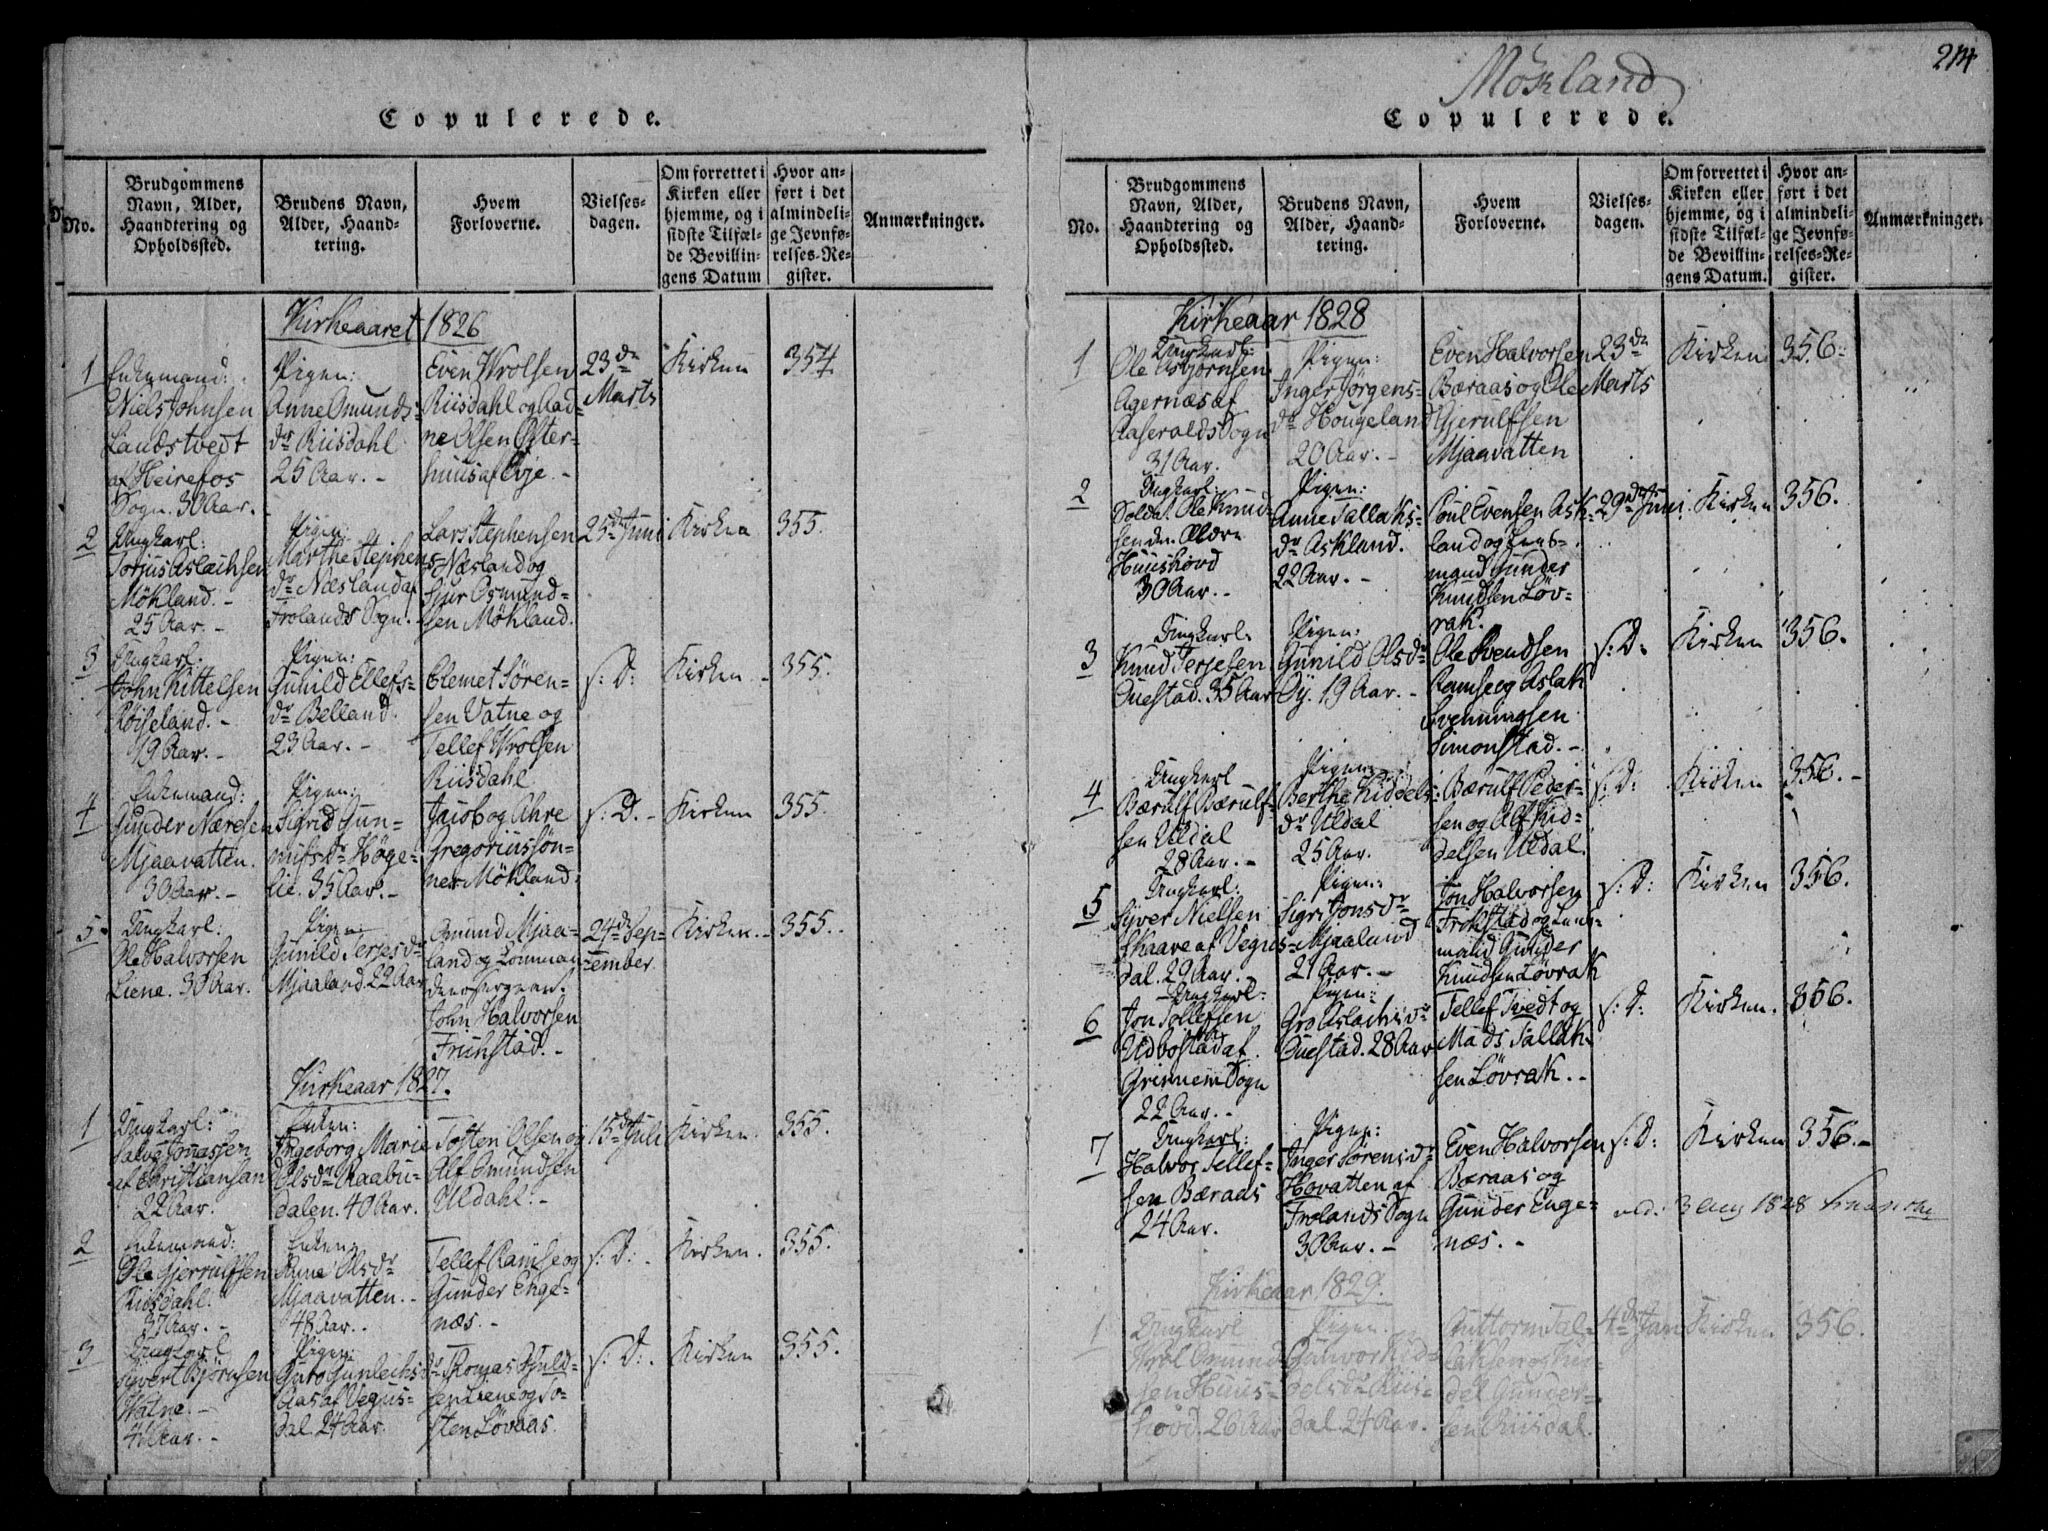 Copulerede.
No.
Brudgommens
Navn, Alder,
Haandtering og
Opholdssted.
Brudens Navn,
Alder, Haand-
tering.
Hvem
Forloverne.
Vielses-
dagen.
Om forrettet i
Kirken eller
hjemme, og i
sidste Tilfæl-
de Bevillin-
gens Datum
Hvor an-
ført i det
almindeli-
ge Jevnfø-
relses-Re-
gister.
Anmærkninger.
Kirkeaaret 1826
1
Enkemand:
Niels Johnsen
Landstvedt
af Heirefos
Sogn. 30 Aar.
Pigen:
Anne Omunds-
dr Riisdahl
25 Aar. -
Even Wrolsen
Riisdahl og Aad-
ne Olsen Øster-
huus af Evje. -
23de
Marts
Kirken
354
2
Ungkarl:
Torjus Aslachsen
Mökland. -
25 Aar. -
Pigen:
Marthe Stephens
dr Næsland af
Frolands Sogn. -
Lars Stephensen
Næsland og
Sjur Osmund-
sen Mökland.
25de Juni
Kirken
355.
3
Ungkarl.
John Kittelsen
Röiseland. -
49 Aar. -
Pigen:
Gunild Ellefs-
dr Belland.
23 Aar. -
Clemet Sören-
sen Vatne og
Tellef Wrolsen
Riisdahl
s: D:
Kirken -
355.
4
Enkemand:
Gunder Næresen
Mjaavatten.
30 Aar. -
Pigen:
Sigrid Gun-
nufsdr Höge-
lie. 35 Aar. -
Jacob og Ahre
Gregoriussön-
ner Mökland.
s: D. -
Kirken
355.
5.
Ungkarl:
Ole Halvorsen
Liene. 30 Aar.
Pigen:
Gunild Terjesdr
Mjaaland. 22 Aar
Omund Mjaa-
land og Comman-
deersergeant
John Halvorsen
Friihstad. -
24de Sep-
tember
Kirken. -
355.
Kirkeaar 1827.
1
Ungkarl:
Salve Jonassen
af Christiansan
22 Aar.
Enken:
Ingeborg Marie
Olsdr Raabu-
dalen. 40 Aar.
Tosten Olsen og
Alf Omundsen
Uldahl. -
15de Juli
Kirken.
355.
2
Enkemand:
Ole Gjerrulfsen
Riisdahl.
37 Aar. -
Enken:
Anne Olsdr
Mjaavatten. -
48 Aar. -
Tellef Ramse og
Gunder Enge-
næs. -
s: D: -
Kirken.
355.
3
Ungkarl
Sjvert Björnsen
Watne. -
Aar. -
Pigen:
Guro Gunlechsdr
Aas af Vegus-
dal. 24 Aar.
Tomas
sen Liene og To-
sten Lövaas.
s: D: -
Kirken
355.
214
Mökland
Copulerede.
No.
Brudgommens
Navn, Alder,
Haandtering og
Opholdssted.
Brudens Navn,
Alder, Haand-
tering.
Hvem
Forloverne.
Vielses-
dagen.
Om forrettet i
Kirken eller
hjemme, og i
sidste Tilfæl-
de Bevillin-
gens Datum.
Hvor an-
ført i det
almindeli-
ge Jevnfø-
relses-Re-
gister.
Anmærkninger.
Kirkeaar 1828
1
Ungkarl:
Ole Asbjørnsen
Agernæs af
Aaseralds Sogn
31 Aar.
Pigen:
Inger Jörgens-
dr Hougeland
20 Aar. -
Even Halvorsen
Baraas og Ole
Gjerulfsen
Mjaavatten
23de
Marts
Kirken
356:
2
Ungkarl: -
Soldat. Ole Knud-
sen den Ældre
Huushovd
30 Aar. -
Pigen:
Anne Tallaks-
dr Askland.
22 Aar. -
Poul Evensen Ask-
land og Lens-
mand Gunder
Knudsen Löv-
rak.
29de Juni
Kirken
356.
3
Ungkarl.
Knud Terjesen
Ouestad. 35 Aar
Pigen:
Gunild Olsdr
Öy. 19 Aar. -
Ole Svendsen
Ramse og Aslak
Svenningsen
Simonstad. -
s: D:
Kirken
356.
4
Ungkerl
Bærulf Bærulf-
sen Uldal
28 Aar. -
Pigen:
Berthe Kiddels-
dr Uldal
25 Aar.
Bærulf Peder-
sen og Alf Kid-
delsen Uldal.
s: D:
Kirken
356. -
5
Ungkarl:
Syver Nielsen
Skaare af Vegus-
dal. 29 Aar.
Pigen:
Sigri Jonsdr
Mjaaland
21 Aar. -
Jon Halvorsen
Frohstad og Lens-
mand Gunder
Knudsen Lövrak
s: D:
Kirken
356.
6
Ungkarl:
Jon Tollefsen
Udbostad af
Grimnem Sogn
22 Aar. -
Pigen:
Gro Aslachsdr
Ouestad. 28 Aar
Tellef Tvedt og
Mads Tallak-
sen Lövrak. -
s: D:
Kirken.
356.
7
Ungkarl:
Halvor Tellef-
sen Bæraas
24 Aar.
Pigen:
Inger Sörensdr
Hovatten af
Frolands Sogn
30 Aar. -
Even Halvorsen
Bæraas og
Gunder Enge-
næs. -
s: D:
Kirken
356. -
3 Aug 1828
Kirkeaar 1829.
1
Ungkarl
Wrol Omund-
sen Huus-
hovd. 26 Aar
Pigen.
Gunvor Kid-
delsdr Riis-
dal 24 Aar.
Guttorm Tal-
laksen og Kid-
del Gunder-
sen Riisdal.
4de Jan
Kirken
356.